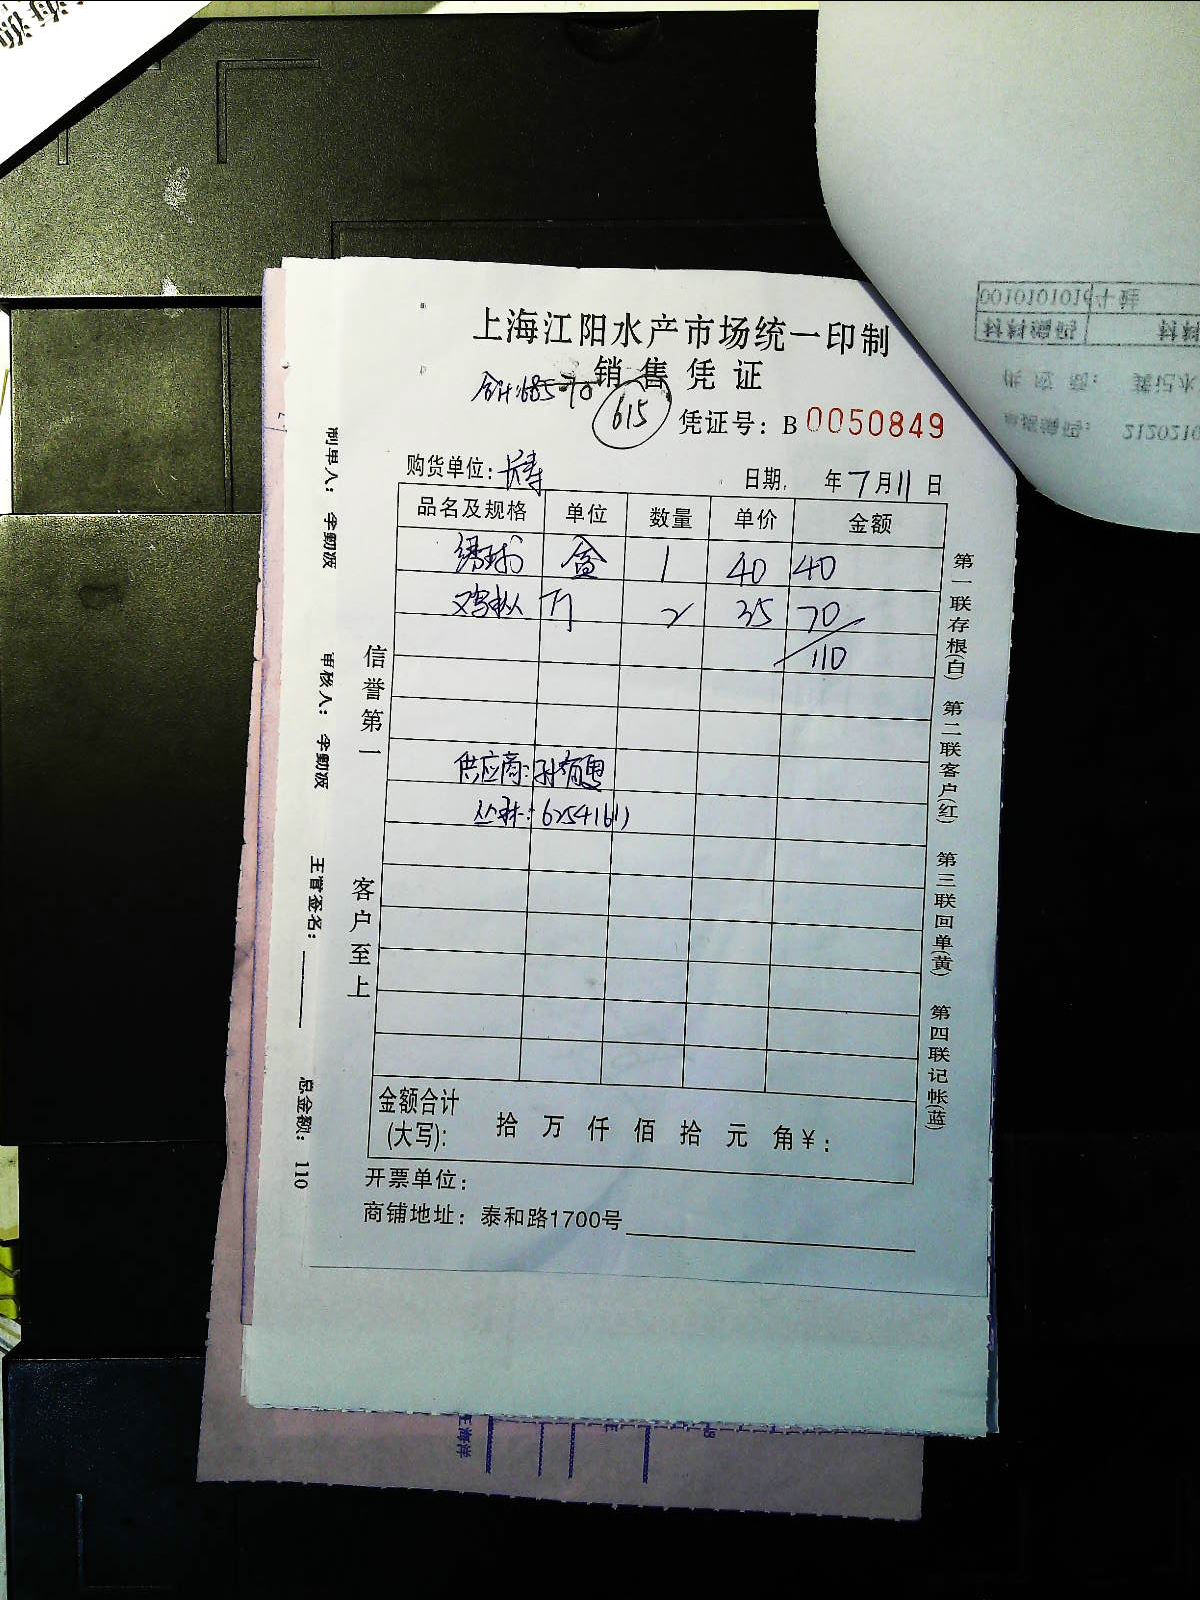 上海江阳水产市场统一印制
销售凭证
合计:685-70
615
凭证号: B 0050849
购货单位: 长寿
日期, 年 7 月 11 日
品名及规格 单位 数量 单价 金额
绣球 盒 1 40 40
鸡枞 斤 2 35 70
110
供应商:
62541611
信誉第一
客户至上
第一联存根(白)
第二联客户(红)
第三联回单(黄)
第四联记帐(蓝)
金额合计
(大写): 拾 万 仟 佰 拾 元 角 ¥:
开票单位:
商铺地址: 泰和路1700号
制单人: 李勤波
审核人: 李勤波
主管签名:
总金额: 110
材料编码
供应商: